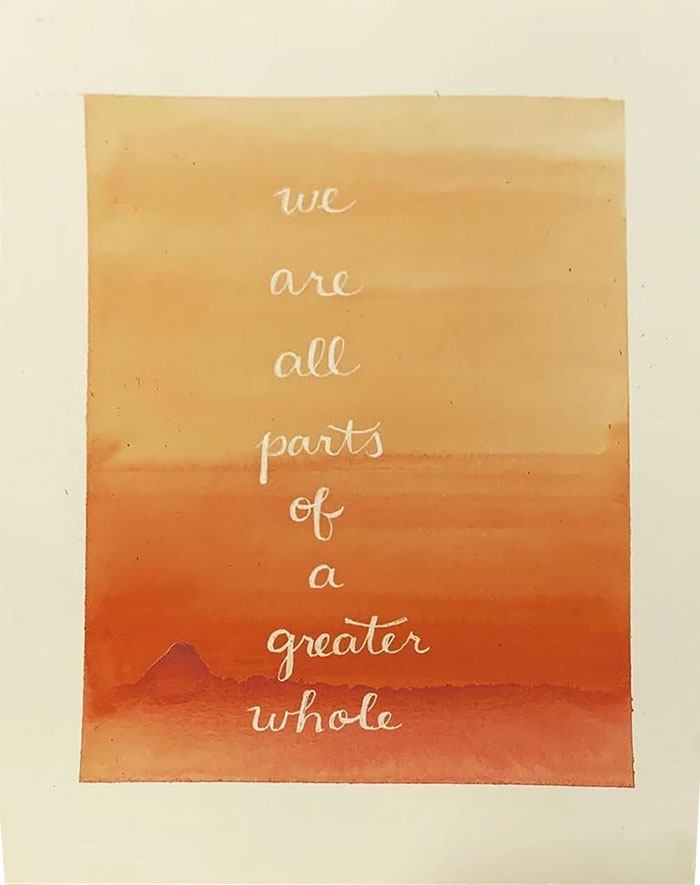 we
are
all
parts
of
a
greater
whole